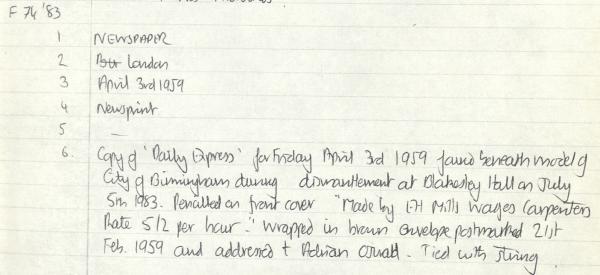 F 74 '83
1 NEWSPAPER
2 London
3 April 3rd 1959
4 Newsprint
5 —
6. Copy of 'Daily Express' for Friday April 3rd 1959 found beneath model of
City of Birmingham during dismantlement at Blakesley Hall on July
5th 1983. Pencilled on front cover "Made by Mills Wages Carpenters
Rate 5/2 per hour." wrapped in brown envelope postmarked 21st
Feb. 1959 and addressed to Adrian. Tied with string.